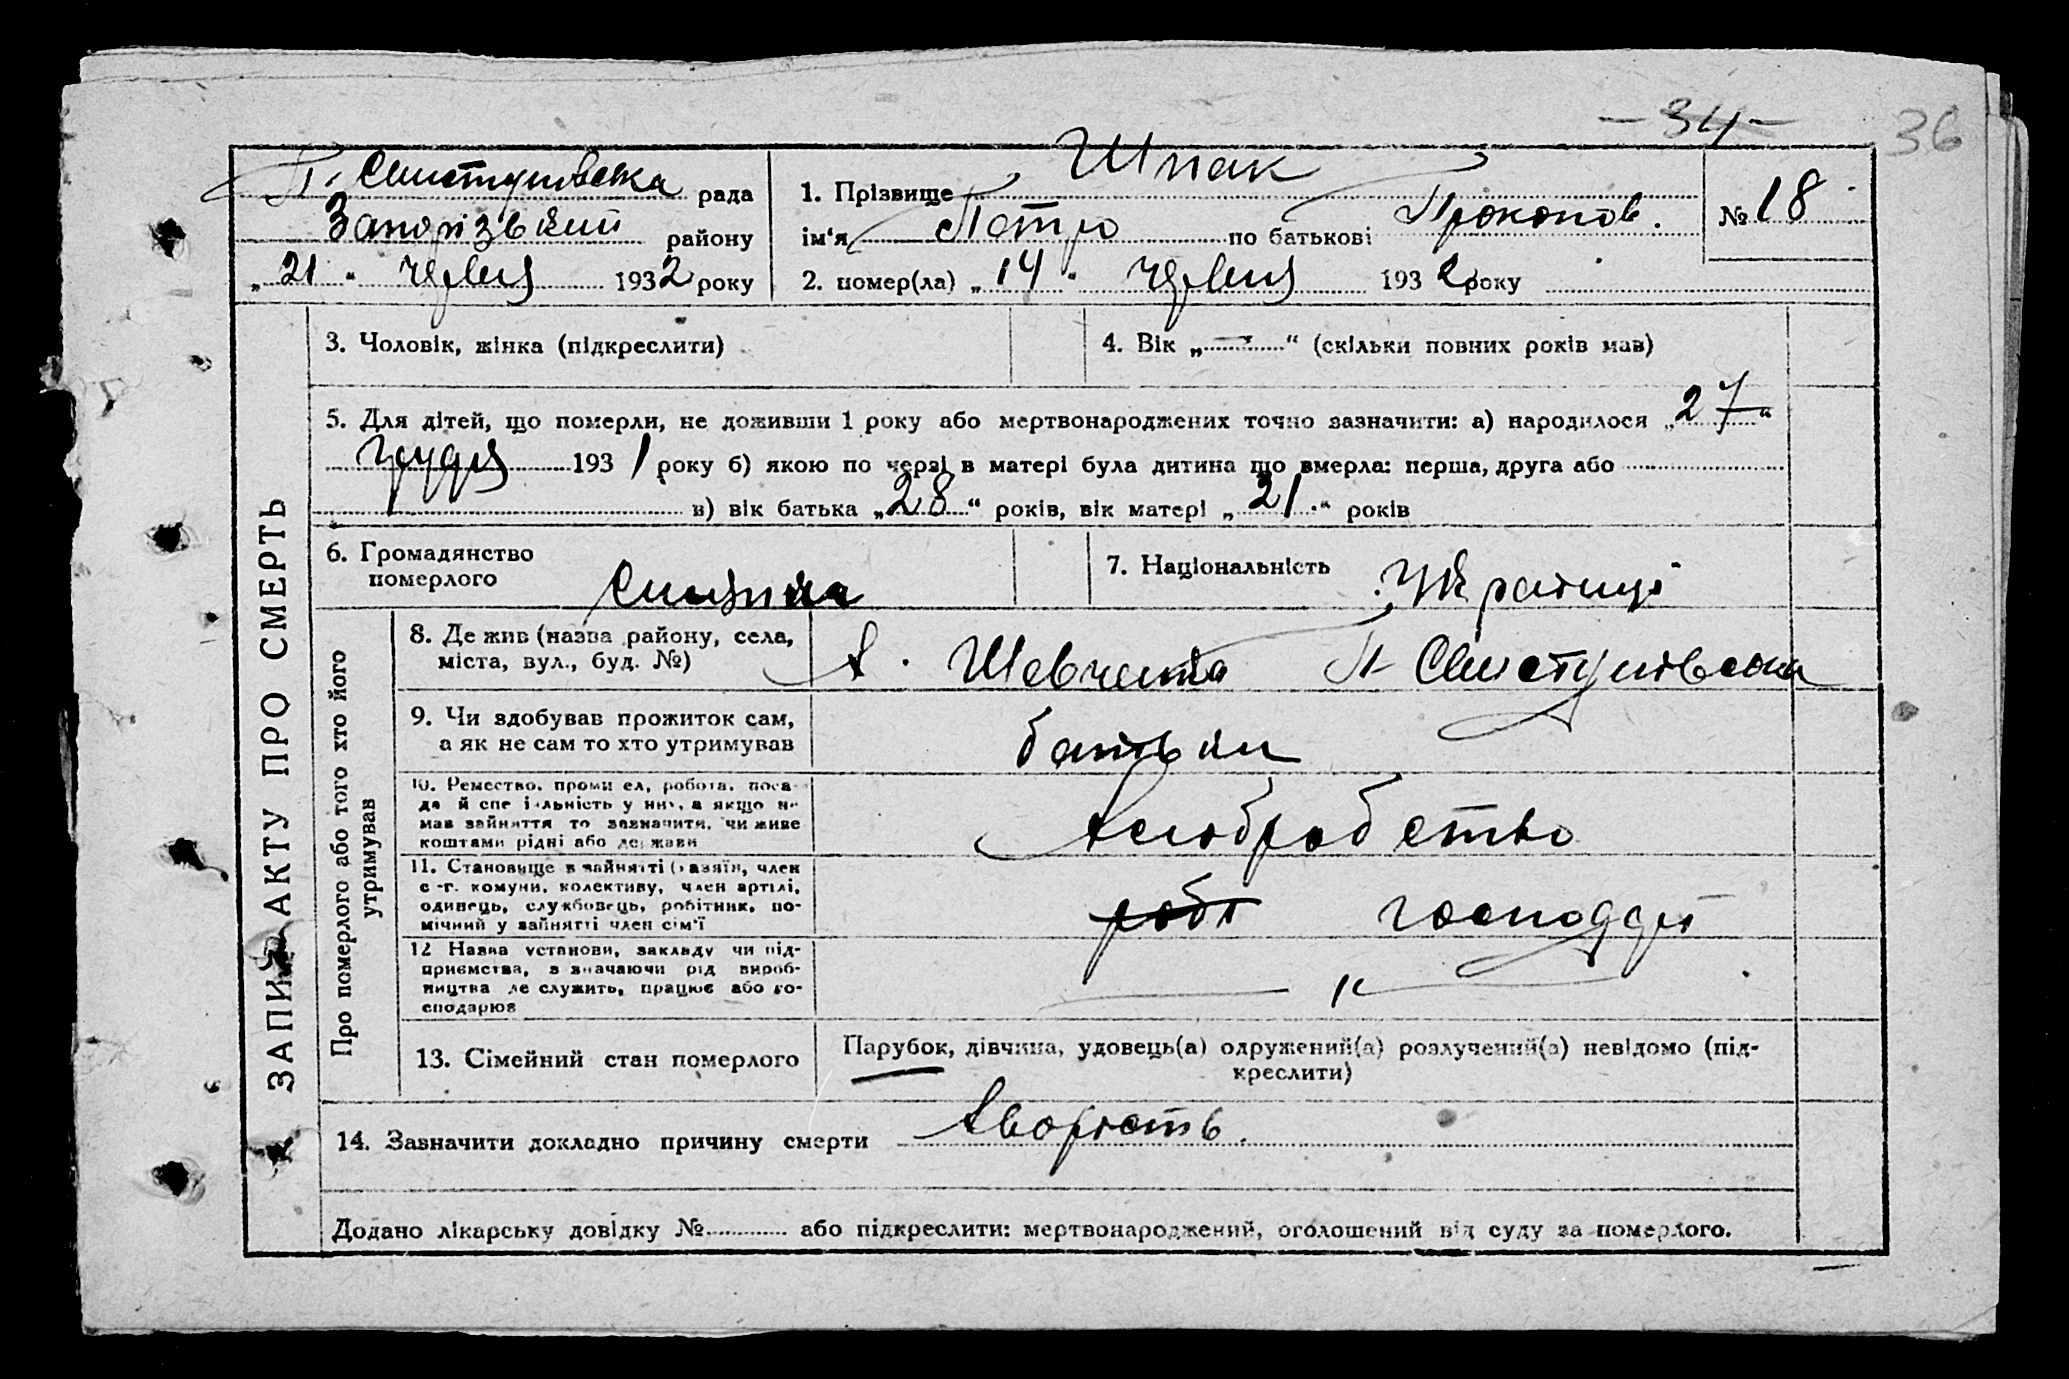 - 34 -
36
П. Свистуновська рада
Запорізький району
„21“ червня 1932 року
1. Прізвище Шпак
ім'я Петро по батькові Прокопов.
2. помер(ла) „14“ червня 1932 року
№ 18
3. Чоловік, жінка (підкреслити)
4. Вік „—“ (скільки повних років мав)
5. Для дітей, що померли, не доживши 1 року або мертвонароджених точно зазначити: а) народилося „27“
грудня 1931 року б) якою по черзі в матері була дитина що вмерла: перша, друга або
в) вік батька „28“ років, вік матері „21“ років
6. Громадянство
померлого
7. Національність Українці
ЗАПИС АКТУ ПРО СМЕРТЬ
Про померлого або того хто його
утримував
8. Де жив (назва району, села,
міста, вул., буд. №)
с. Шевченка П-Свистуновська
9. Чи здобував прожиток сам,
а як не сам то хто утримував
батьки
10. Ремество, промисел, робота, поса-
да й спеціяльність у них, а якщо не
мав зайняття то зазначити, чи живе
коштами рідні або держави
хлібробство
11. Становище в зайнятті (хазяїн, член
с-г. комуни, колективу, член артілі,
одинець, службовець, робітник, по-
мічний у зайнятті член сім'ї
робі господар
12 Назва установи, закладу чи під-
приємства, зазначаючи рід вироб-
ництва де служить, працює або го-
сподарює
— „ —
13. Сімейний стан померлого
Парубок, дівчина, удовець(а) одружений(а) розлучений(а) невідомо (під-
креслити)
14. Зазначити докладно причину смерти хворість.
Додано лікарську довідку № або підкреслити: мертвонароджений, оголошений від суду за померлого.